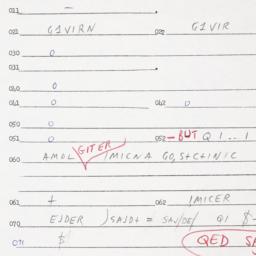 011 –
021 G1VIRN 022 G1VIR
030 0
031
040 0
041 0 042 0
050 0
051 0 052 – BUT Q 1 . . 1
GITER
060 AMOL IMICNA GO, S+C+INIC
061 + 062 IMICER
070 EJDER )SAJD+ = SAJ/DE/ Q1 $-
071 $ QED